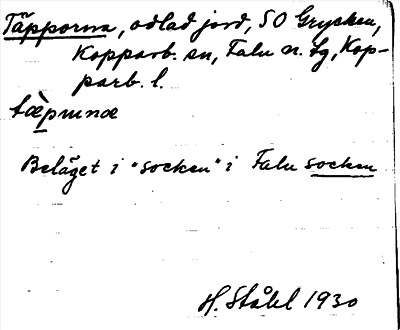 Täpporna, odlad jord, SO Grycken,
Kopparb. sn, Falu n. tg, Kop-
parb. l.
tæ̀pumæ
Beläget i "socken" i Falu socken
H. Ståhl 1930